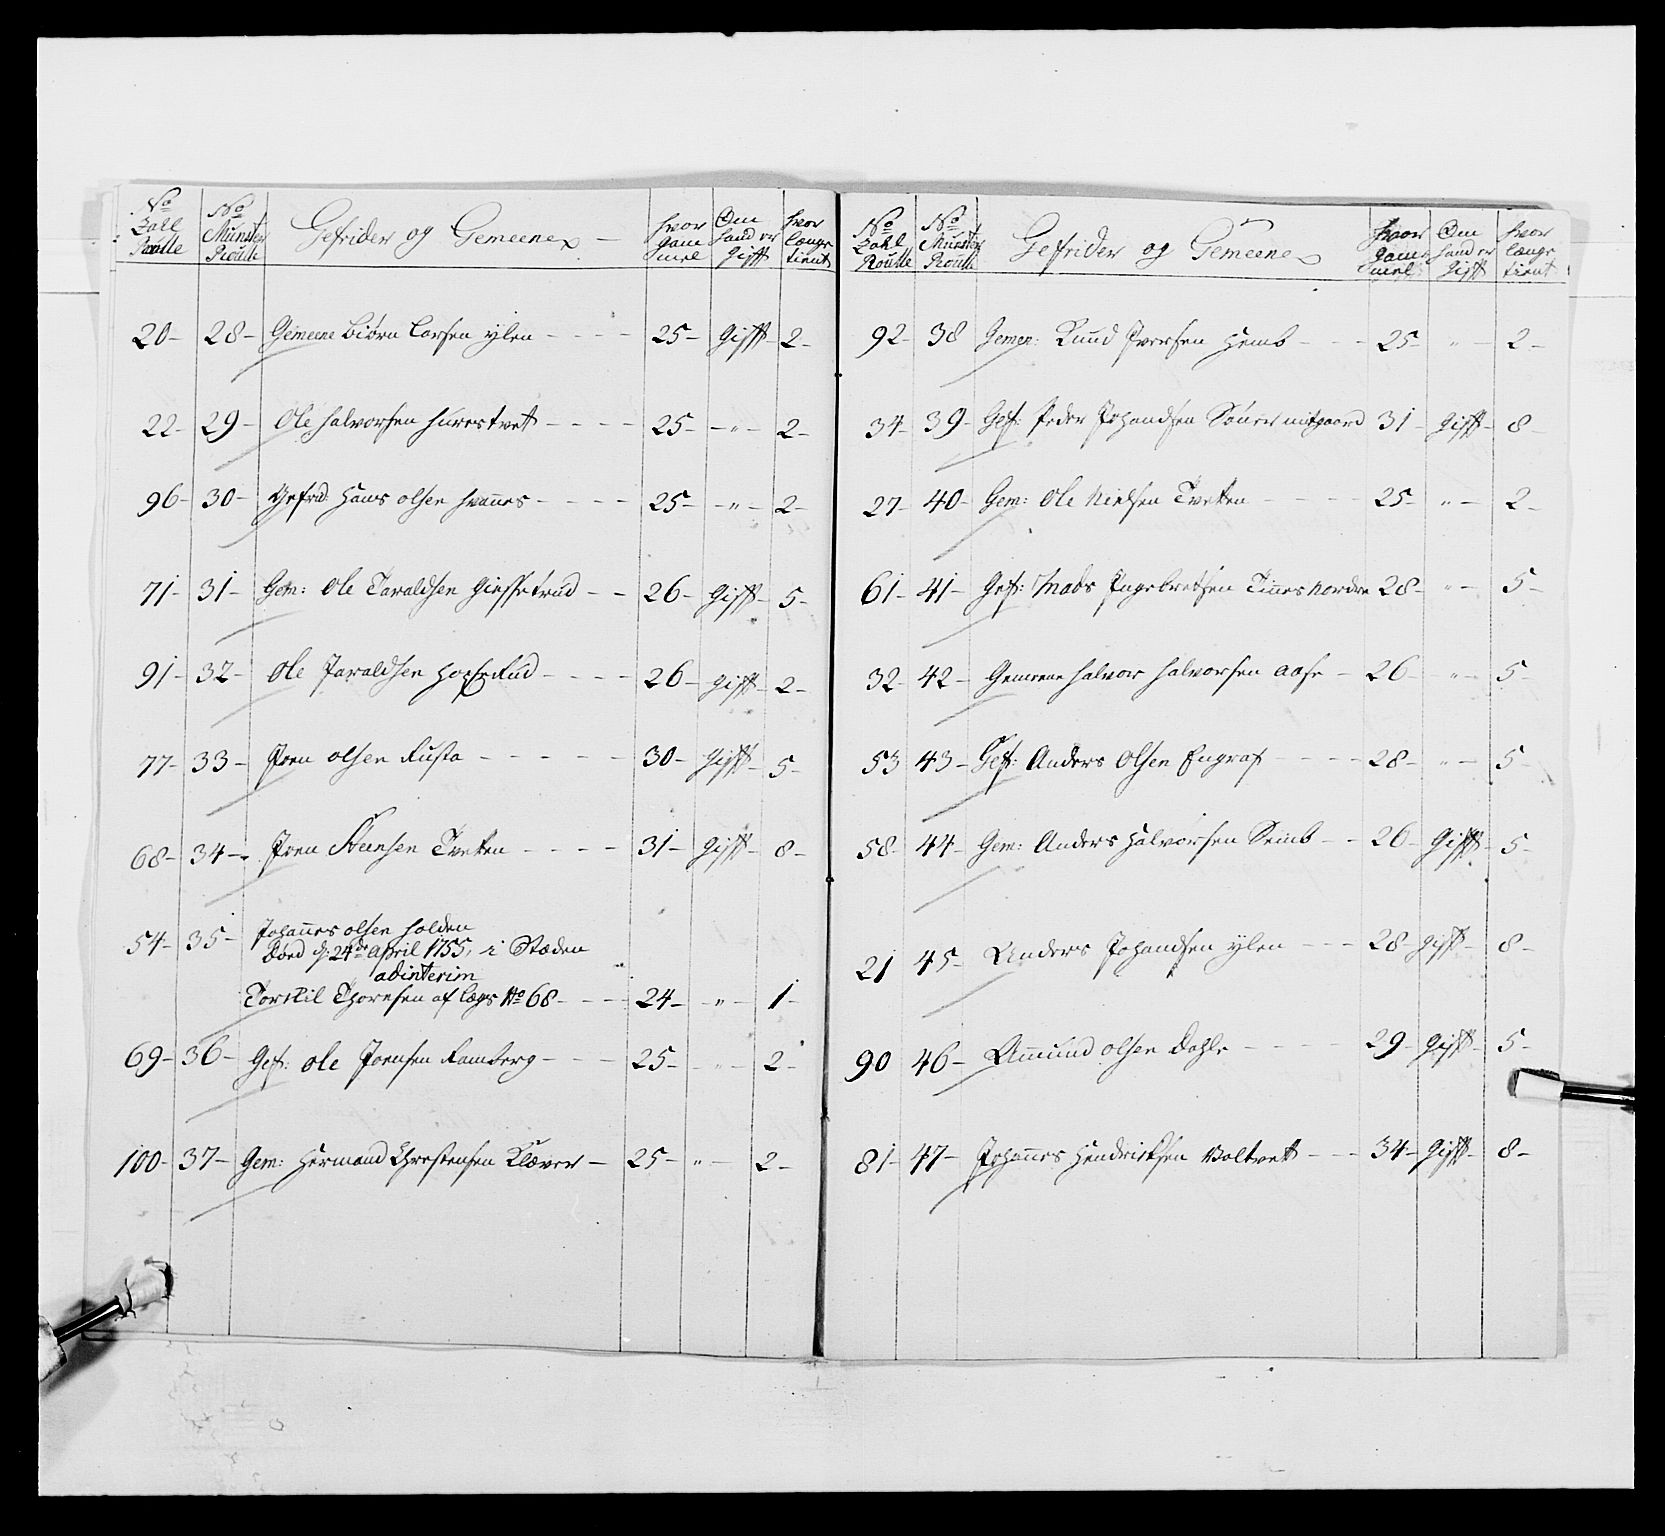 No Zall Roulle | No Munster Roulle | Gefrider og Gemeene | hvor gammel | Om hand er Gifft | hvor længe tient
20 - 28 - Gemeene Biørn Larsen ylen - - - - 25 - Gifft - 2 -
22 - 29 - Ole Halvorsen Hurestvet - - - - 25 - " - 2 -
96 - 30 - Gefrid: Hans Olsen Hvannes - - - - 25 - " - 2 -
71 - 31 - Gem: Ole Taraldsen - - 26 - Gifft - 5 -
91 - 32 - Ole Taraldsen - - - - 26 - gifft - 2 -
77 - 33 - Jven Olsen Rusta - - - - - 30 - Gifft - 5 -
68 - 34 - Jven Steensen Tveten - - - - 31 - Gifft - 8 -
54 - 35 - Johannes olsen Holden
Død d: 24de April 1755, i Stæden
adinterim
Torskil Thoresen af lægs No 68 - - - 24 - " - 1 -
69 - 36 - Gef: Ole Joensen Ramberg - - - 25 - " - 2 -
100 - 37 - Gem: Hermand Christensen Klæver - 25 - " - 2 -
No Zahl Roulle | No Munster Roulle | Gefrider og Gemeene | hvor gammel | Om hand er Gifft | hvor længe tient
92 - 38 Gemen: Knud Iversen Hemb - - - 25 - " - 2 -
34 - 39 - Gef: Peder Johandsen mitgaard 31 - Gifft - 8 -
27 - 40 - Gem: Ole Nielsen Tveten - - - - 25 - " - 2 -
61 - 41 - Gef: Mads Ingebretsen Tinnes Nordre 28 - " - 5 -
32 - 42 - Gemeene Halvor Halvorsen Aase - 26 - " - 5 -
53 43 - Gef: Anders Olsen Engraf - - - - 28 - " - 5 -
58 - 44 - Gem: Anders Halvorsen Semb - - 26 - Gifft - 5 -
21 45 - Anders Johandsen ylen - - - 28 - gifft - 8 -
90 46 - Amund Olsen Dahle - - - - 29 - gifft - 5 -
81 - 47 - Johannes Hendricksen Boltvett - - - 34 - Gifft - 8 -